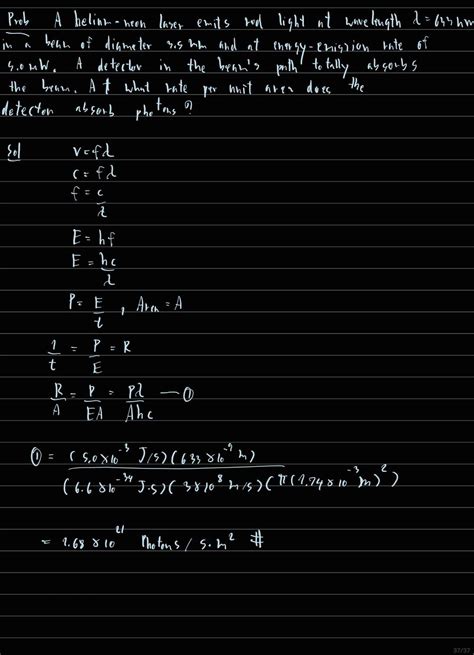 Prob A helium-neon laser emits red light at wavelength λ = 633 nm
in a beam of diameter 3.5 mm and at energy-emission rate of
5.0 mW. A detector in the beam's path totally absorbs
the beam. At what rate per unit area does the
detector absorb photons?
Sol v = fλ
c = fλ
f = c/λ
E = hf
E = hc/λ
P = E/t , Area = A
1/t = P/E = R
R/A = P/EA = Pλ/Ahc — ①
① = (5.0×10⁻³ J/s)(633×10⁻⁹ m) / (6.6×10⁻³⁴ J.s)(3×10⁸ m/s)(π(1.74×10⁻³ m)²)
= 1.68×10²¹ Photons / s.m² #
37/37